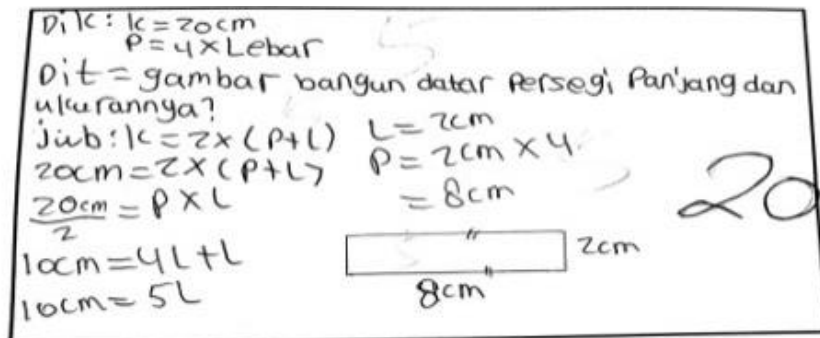 Dik: k = 20cm
P = 4 x Lebar
Dit = gambar bangun datar Persegi Panjang dan
ukurannya?
jwb: k = 2x (P+L)
20cm = 2x (P+L)
20cm/2 = P x L
10cm = 4L + L
10cm = 5L
L = 2cm
P = 2cm x 4
= 8cm
2cm
8cm
20